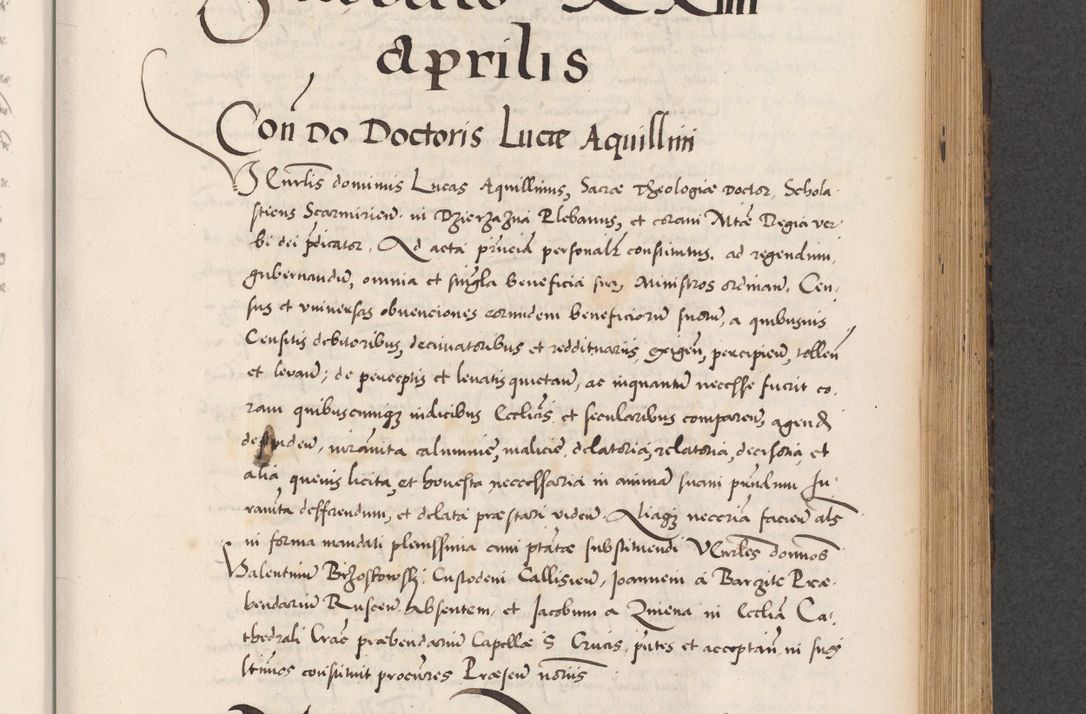 Sabbato XXIIII
Aprilis
Con do Doctoris Lucæ Aquillini
Vnrlis dominus Lucas Aquillinus, Sacræ Theologiæ Doctor, Schola-
sticus Scarmirien in Dzierzazna Plebanus, et coram Mtæ Regia ver-
bi dei pdicator, Ad acta pñcia personalr constitutus, ad regendum,
gubernandũ, omnia et singla beneficia sua, Ministros ordinan, Cen-
sus et vniuersas obuenciones eorundem beneficiorũ suorũ, a quibusuis
Censitis debitoribus, decimatoribus et reddituariis, exigen, percipien, tollen
et levan; de perceptis et levatis quietan, ac inquantũ necesse fuerit co-
ram quibuscunqz iudicibus Ecclicis et secularibus comparen, agend
defenden, iuramta calumnie, malicie, delatoria, relatoria, decisoria, et
alia queuis licita, et honesta neccessaria in animã suam pñdum Iu-
ramta defferendum, et delata præstari viden. Aliaqz neccria facien als
in forma mandati plenissima cum ptate substituendi Vnrles domnos
Valentinũ Brzostowski Custodem Callisien, Joannem a Barzite Præ-
bendariũ Ruscen absentem, et Jacobum a Zniena in Ecclia Ca-
thedrali Crac præbendariũ Capellæ S Crucis, pñtes et acceptan, in suos
ltimos constituit procures Præsen notriis